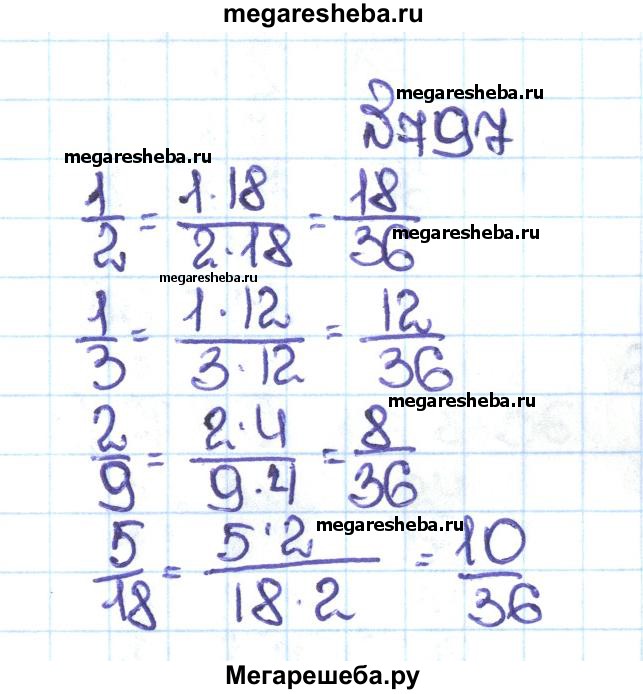 megaresheba.ru
megaresheba.ru
№797
megaresheba.ru
1/2 = 1·18/2·18 = 18/36
megaresheba.ru
megaresheba.ru
1/3 = 1·12/3·12 = 12/36
megaresheba.ru
2/9 = 2·4/9·4 = 8/36
megaresheba.ru
5/18 = 5·2/18·2 = 10/36
Мегарешеба.ру